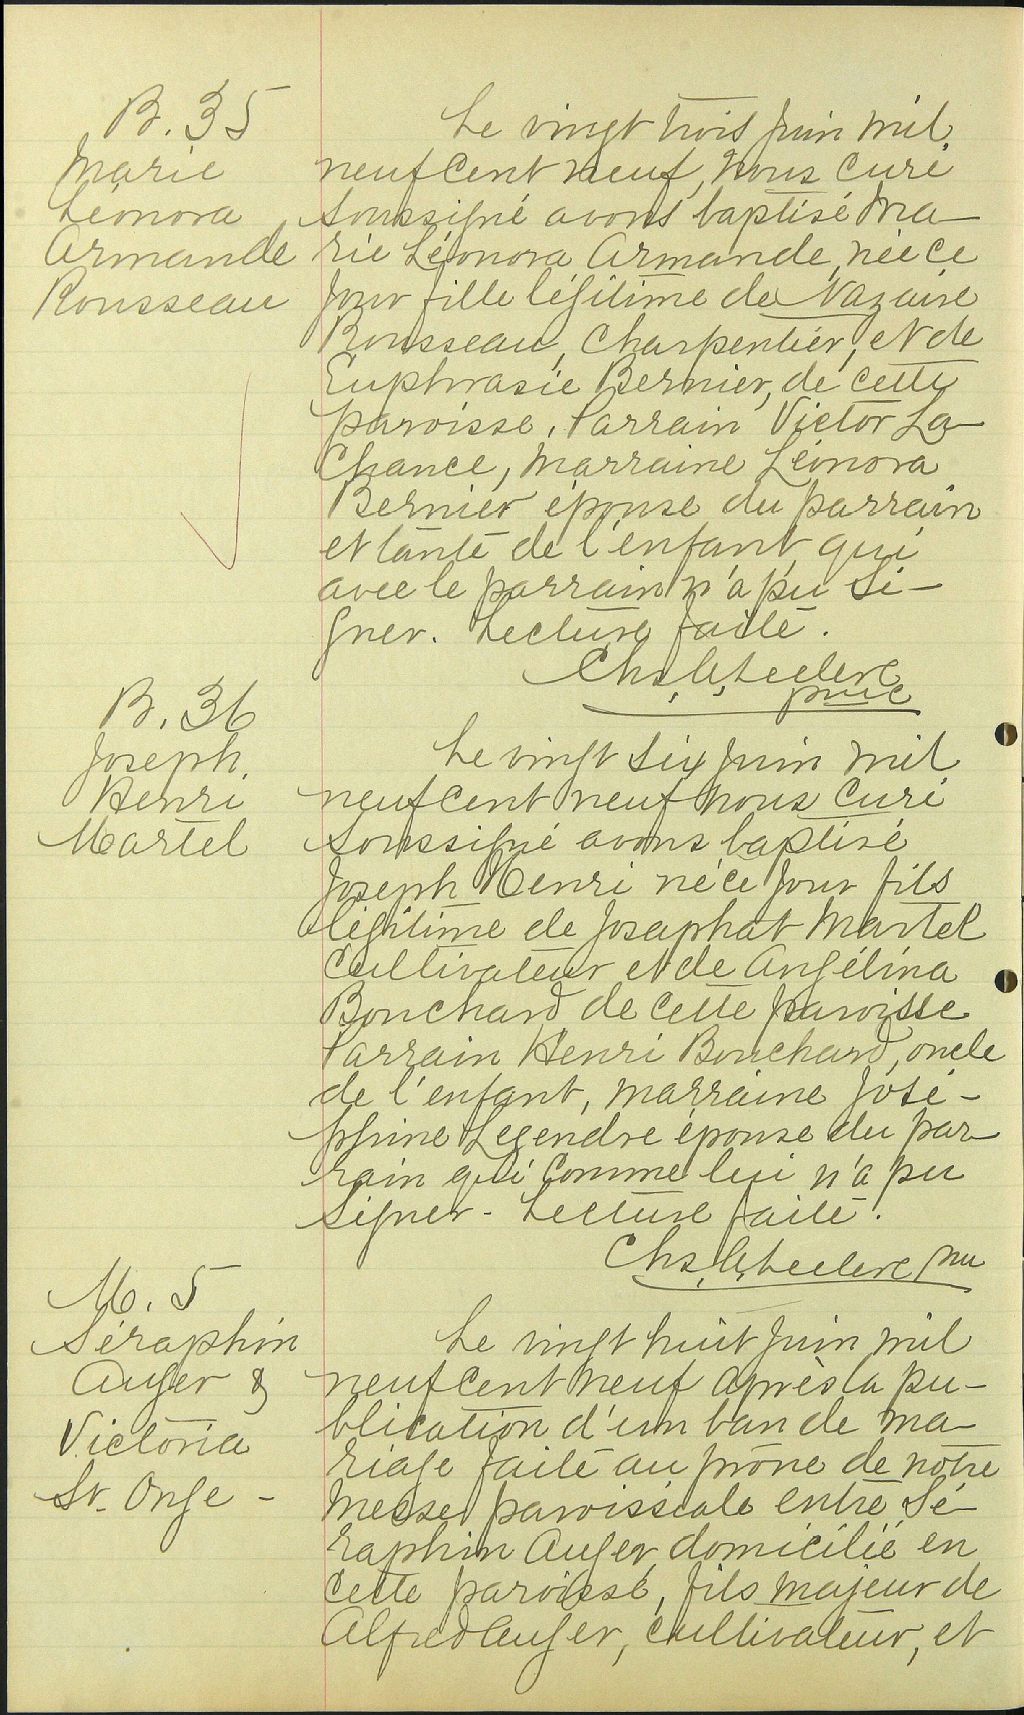 B. 35
Marie
Léonora
Armande
Rousseau
Le vingt trois juin mil
neuf cent neuf, nous curé
soussigné avons baptisé Ma-
rie Léonora Armande, née ce
jour fille légitime de Nazaire
Rousseau, charpentier, et de
Euphrasie Bernier, de cette
paroisse. Parrain Victor La-
Chance, marraine Léonora
Bernier épouse du parrain
et tante de l'enfant, qui
avec le parrain n'a pu si-
gner. Lecture faite.
Chs. Leclerc
ptre
B. 36
Joseph
Henri
Martel
Le vingt six juin mil
neuf cent neuf nous curé
soussigné avons baptisé
Joseph Henri né ce jour fils
légitime de Josaphat Martel
cultivateur et de Angélina
Bouchard de cette paroisse
Parrain Henri Bouchard, oncle
de l'enfant, marraine José-
phine Legendre épouse du par-
rain qui comme lui n'a pu
signer - Lecture faite.
Chs. Leclerc ptre
M. 5
Séraphin
Auger &
Victoria
St. Onge -
Le vingt huit juin mil
neuf cent neuf après la pu-
blication d'un ban de ma-
riage faite au prône de notre
messe paroissiale entre Sé-
raphin Auger, domicilié en
cette paroisse, fils majeur de
Alfred Auger, cultivateur, et